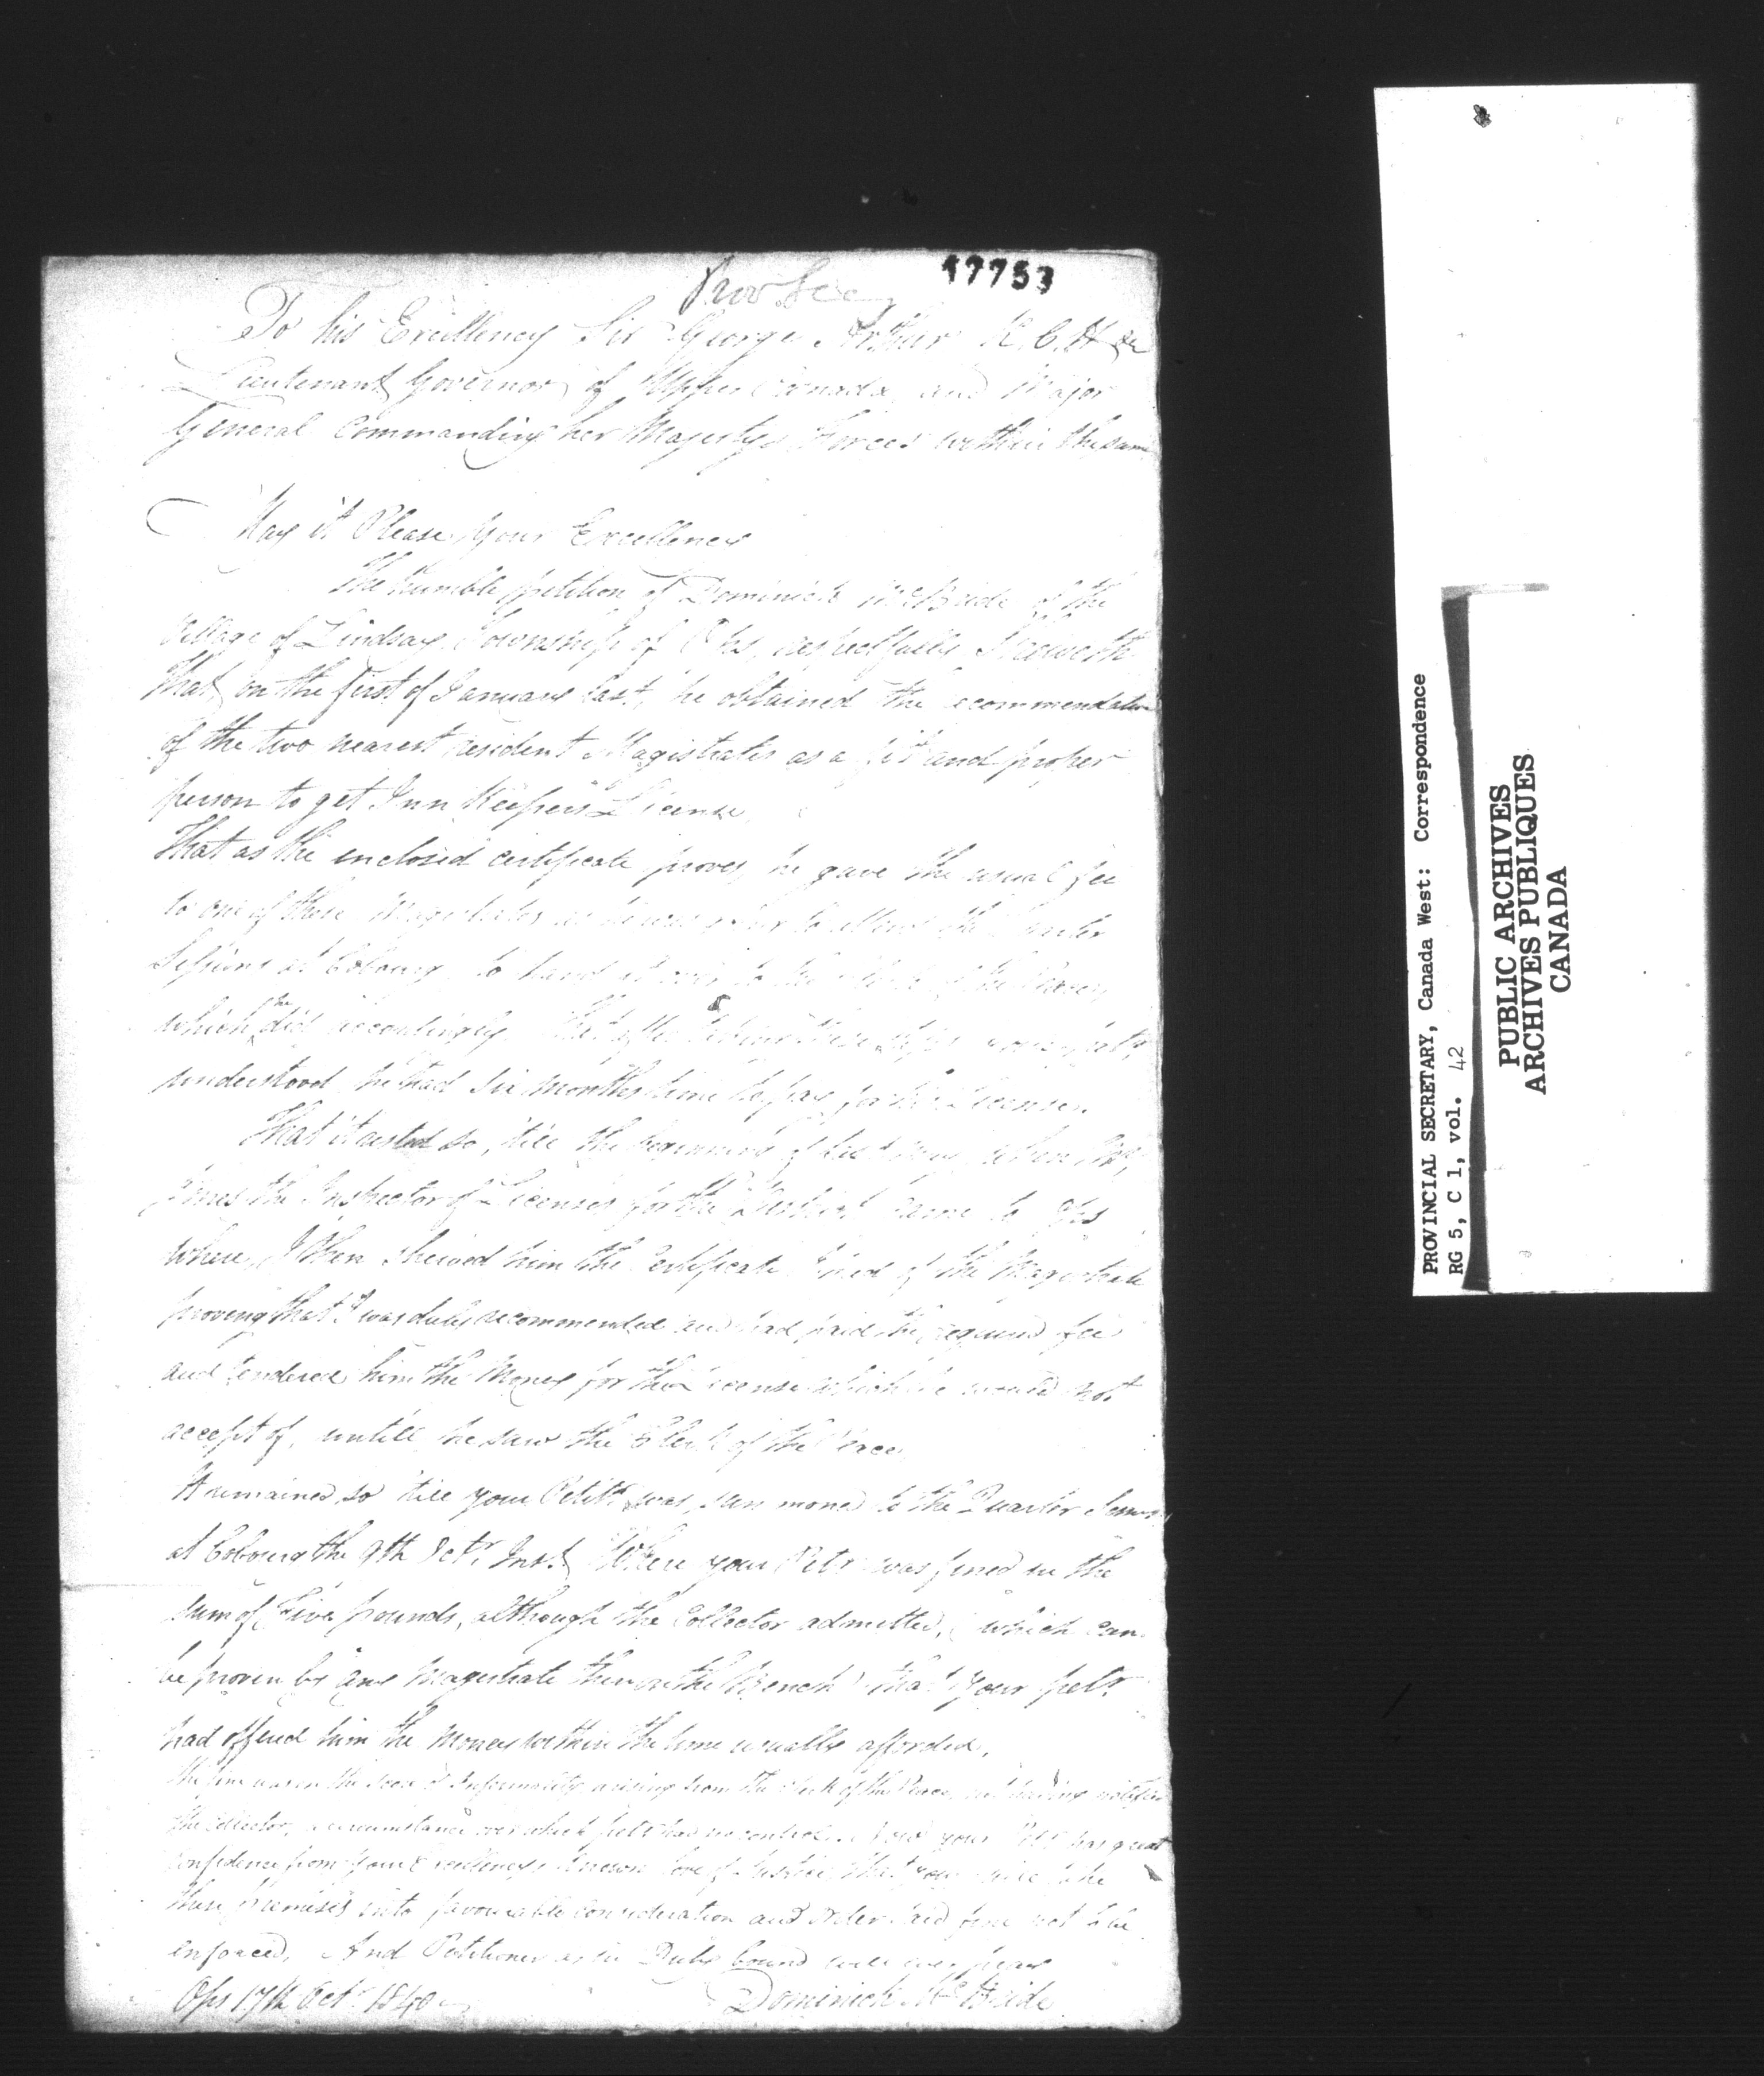 Prov Secy
17753
To his Excellency Sir George Arthur K.C.H &c
Lieutenant Governor of Upper Canada and Major
General Commanding her Majestys Forces within the same
May it Please Your Excellency
The humble petition of Dominick McBride of the
Village of Lindsay Township of Ops, respectfully Sheweth
That on the first of January last, he obtained the recommendation
of the two nearest resident Magistrates as a fit and proper
person to get Inn Keepers License.
That as the enclosed certificate proves he gave the usual fee
to one of these Magistrates as he was to attend the Quarter
Sessions at Cobourg, to hand it over to the Clerk of the Peace,
which he did accordingly. That after taking these steps your pet.r
understood he had Six months time to pay for his License.
That it rested so, till the beginning of last when Mr
the Inspector of Licenses for the District came to Ops
where, I then shewed him the Certificate of the Magistrate
proving that I was duly recommended and had paid the required fee
and tendered him the Money for the License which he would not
accept of, untill he saw the Clerk of the Peace,
It remained so till your Petitr was summoned to the Quarter Sessions
at Cobourg the 9th Octr Inst. Where your Petr was fined in the
sum of Five pounds, although the Collector admitted, (which can
be proven by any Magistrate then on the Bench) that your petr
had offered him the Money within the time usually afforded.
The fine was on the score of Informality arising from the Clerk of the Peace not having notified
the Collector, a circumstance over which petr has no control. Now your Petr has great
confidence from your Excellency's known love of Justice that you will take
these premises into favourable consideration and Order said fine not to be
enforced, And Petitioner as in Duty bound will ever pray
Ops 17th Octr 1840
Dominick McBride
PROVINCIAL SECRETARY, Canada West: Correspondence
RG 5, C 1, vol. 42
PUBLIC ARCHIVES
ARCHIVES PUBLIQUES
CANADA